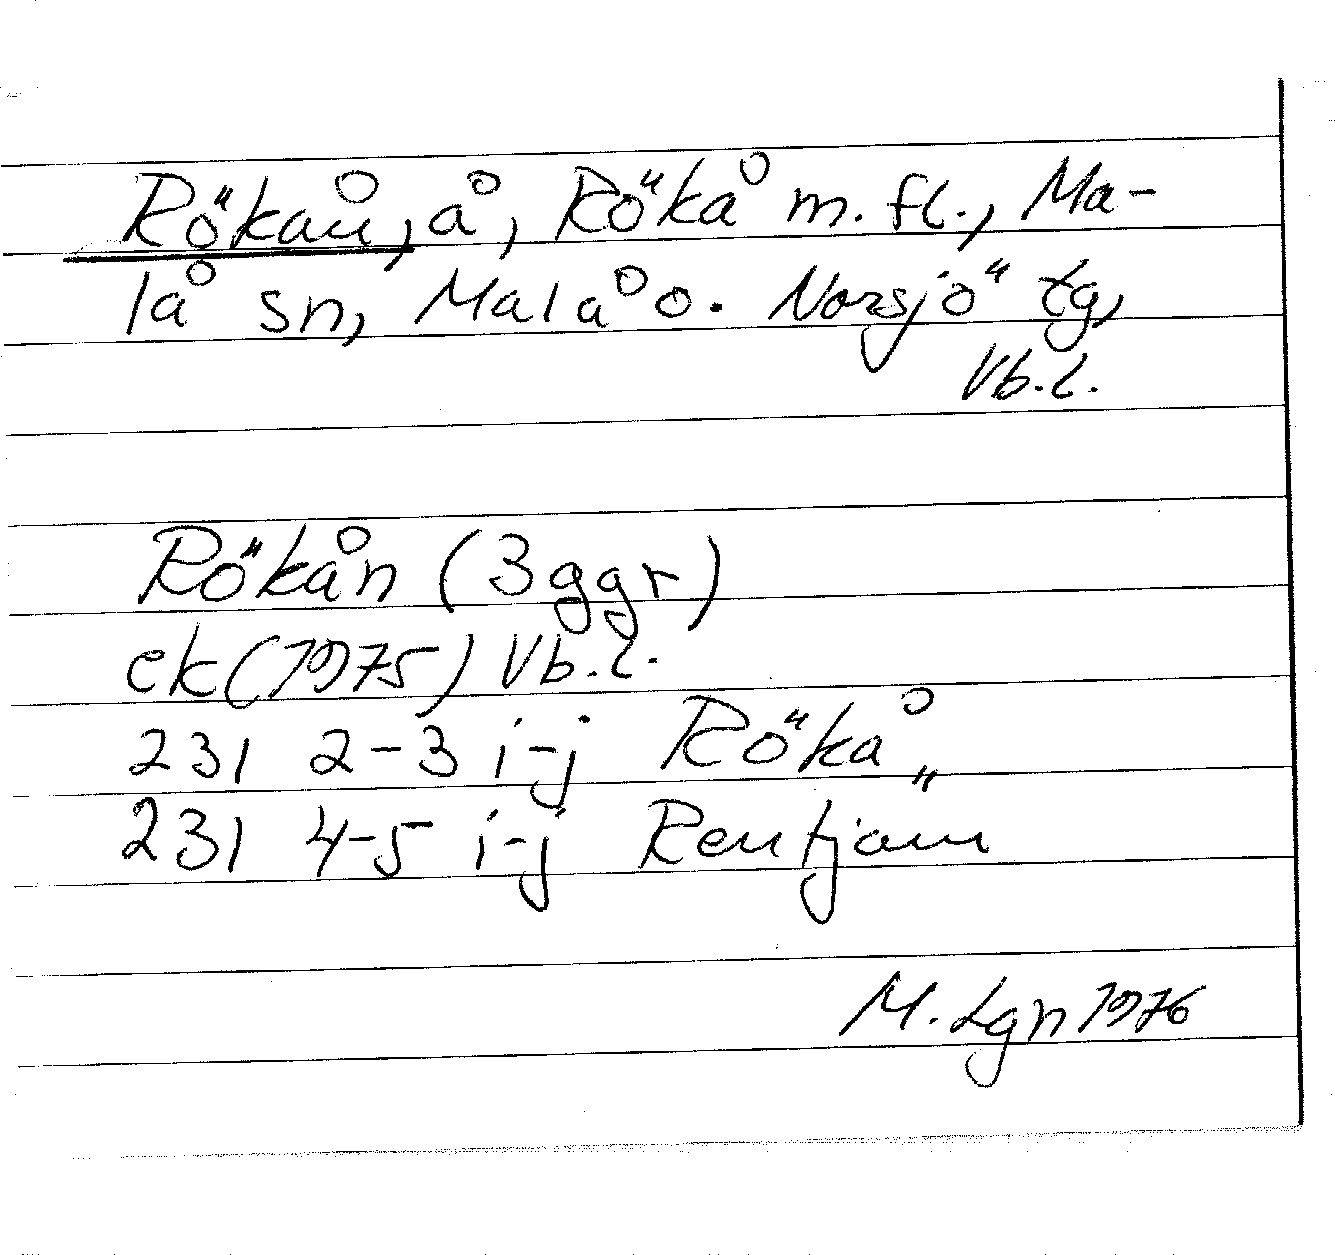 Rökån, å, Rökå m.fl., Ma-
lå sn, Malå o. Norsjö tg,
Vb.l.
Rökån (3 ggr)
ek (1975) Vb.l.
231 2-3 i-j Rökå
231 4-5 i-j Rentjärn
M. Lgn 1976